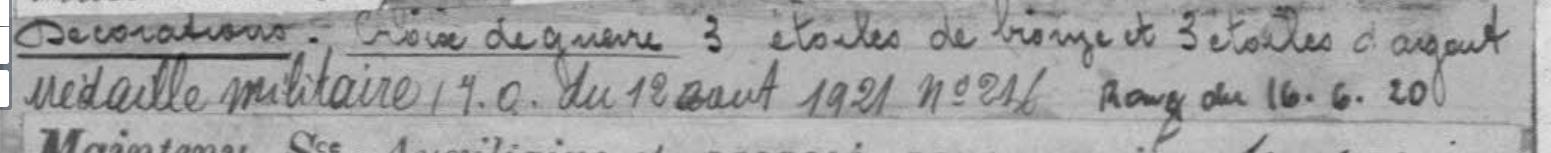 Decorations - Croix de guerre 3 étoiles de bronze et 3 etoiles d'argent
médaille militaire, J.O. du 12 aout 1921 n° 216 Rang du 16.6.20
Maintenu Sce Auxiliaire et